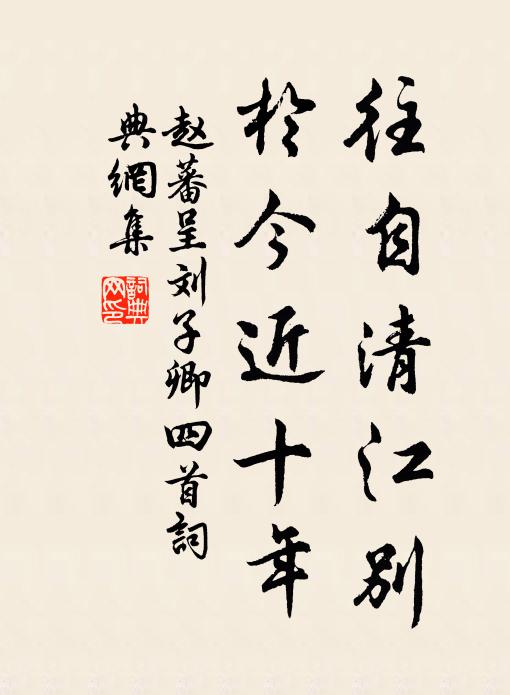 往自清江别
於今近十年
赵蕃呈刘子卿四首詞
典網集
詞典网印